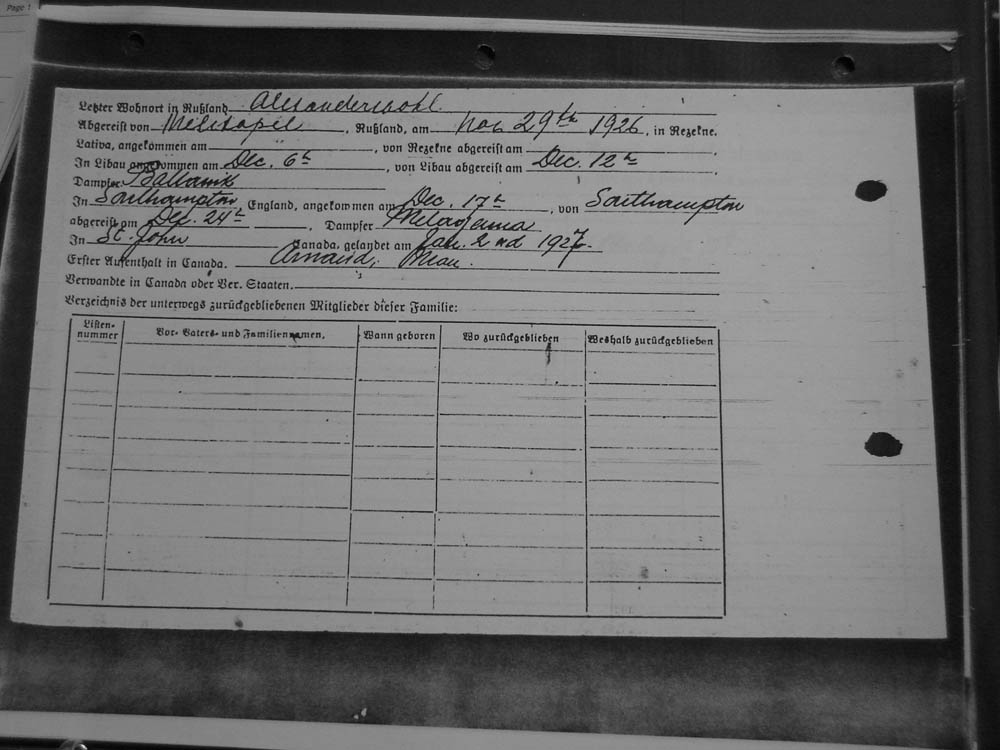 Page 1
Letzter Wohnort in Rußland Alexanderwohl
Abgereist von Melitopil, Rußland, am Nov 29th 1926, in Rezekne.
Lativa, angekommen am , von Rezekne abgereist am
In Libau angekommen am Dec. 6th, von Libau abgereist am Dec. 12th
Dampfer Baltannik
In Southampton, England, angekommen am Dec. 17th, von Southampton
abgereist am Dec. 24th Dampfer Melagama
In St. John Canada, gelandet am Jan. 2nd 1927.
Erster Aufenthalt in Canada. Arnaud, Man.
Verwandte in Canada oder Ver. Staaten.
Verzeichnis der unterwegs zurückgebliebenen Mitglieder dieser Familie:
Listen-nummer Vor- Vaters- und Familiennamen. Wann geboren Wo zurückgeblieben Weshalb zurückgeblieben